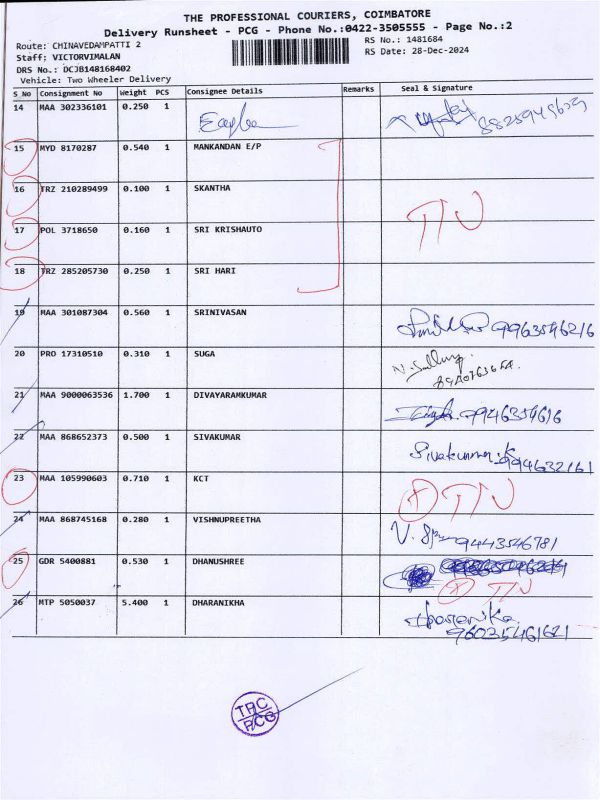 THE PROFESSIONAL COURIERS, COIMBATORE
Delivery Runsheet - PCG - Phone No.:0422-3505555 - Page No.:2
Route: CHINAVEDAMPATTI 2 RS No.: 1481684
Staff: VICTORVIMALAN RS Date: 28-Dec-2024
DRS No.: DCJB148168402
Vehicle: Two Wheeler Delivery
S No Consignment No Weight PCS Consignee Details Remarks Seal & Signature
14 MAA 302336101 0.250 1
15 MYD 8170287 0.540 1 MANKANDAN E/P
16 TRZ 210289499 0.100 1 SKANTHA
17 POL 3718650 0.160 1 SRI KRISHAUTO
18 TRZ 285205730 0.250 1 SRI HARI
19 MAA 301087304 0.560 1 SRINIVASAN 9963546216
20 PRO 17310510 0.310 1 SUGA
21 MAA 9000063536 1.700 1 DIVAYARAMKUMAR 9946354616
22 MAA 868652373 0.500 1 SIVAKUMAR Sivakumar.K 994632161
23 MAA 105990603 0.710 1 KCT
24 MAA 868745168 0.280 1 VISHNUPREETHA 9443546781
25 GDR 5400881 0.530 1 DHANUSHREE
26 MTP 5050037 5.400 1 DHARANIKHA Dharanika
96035461621
PCG